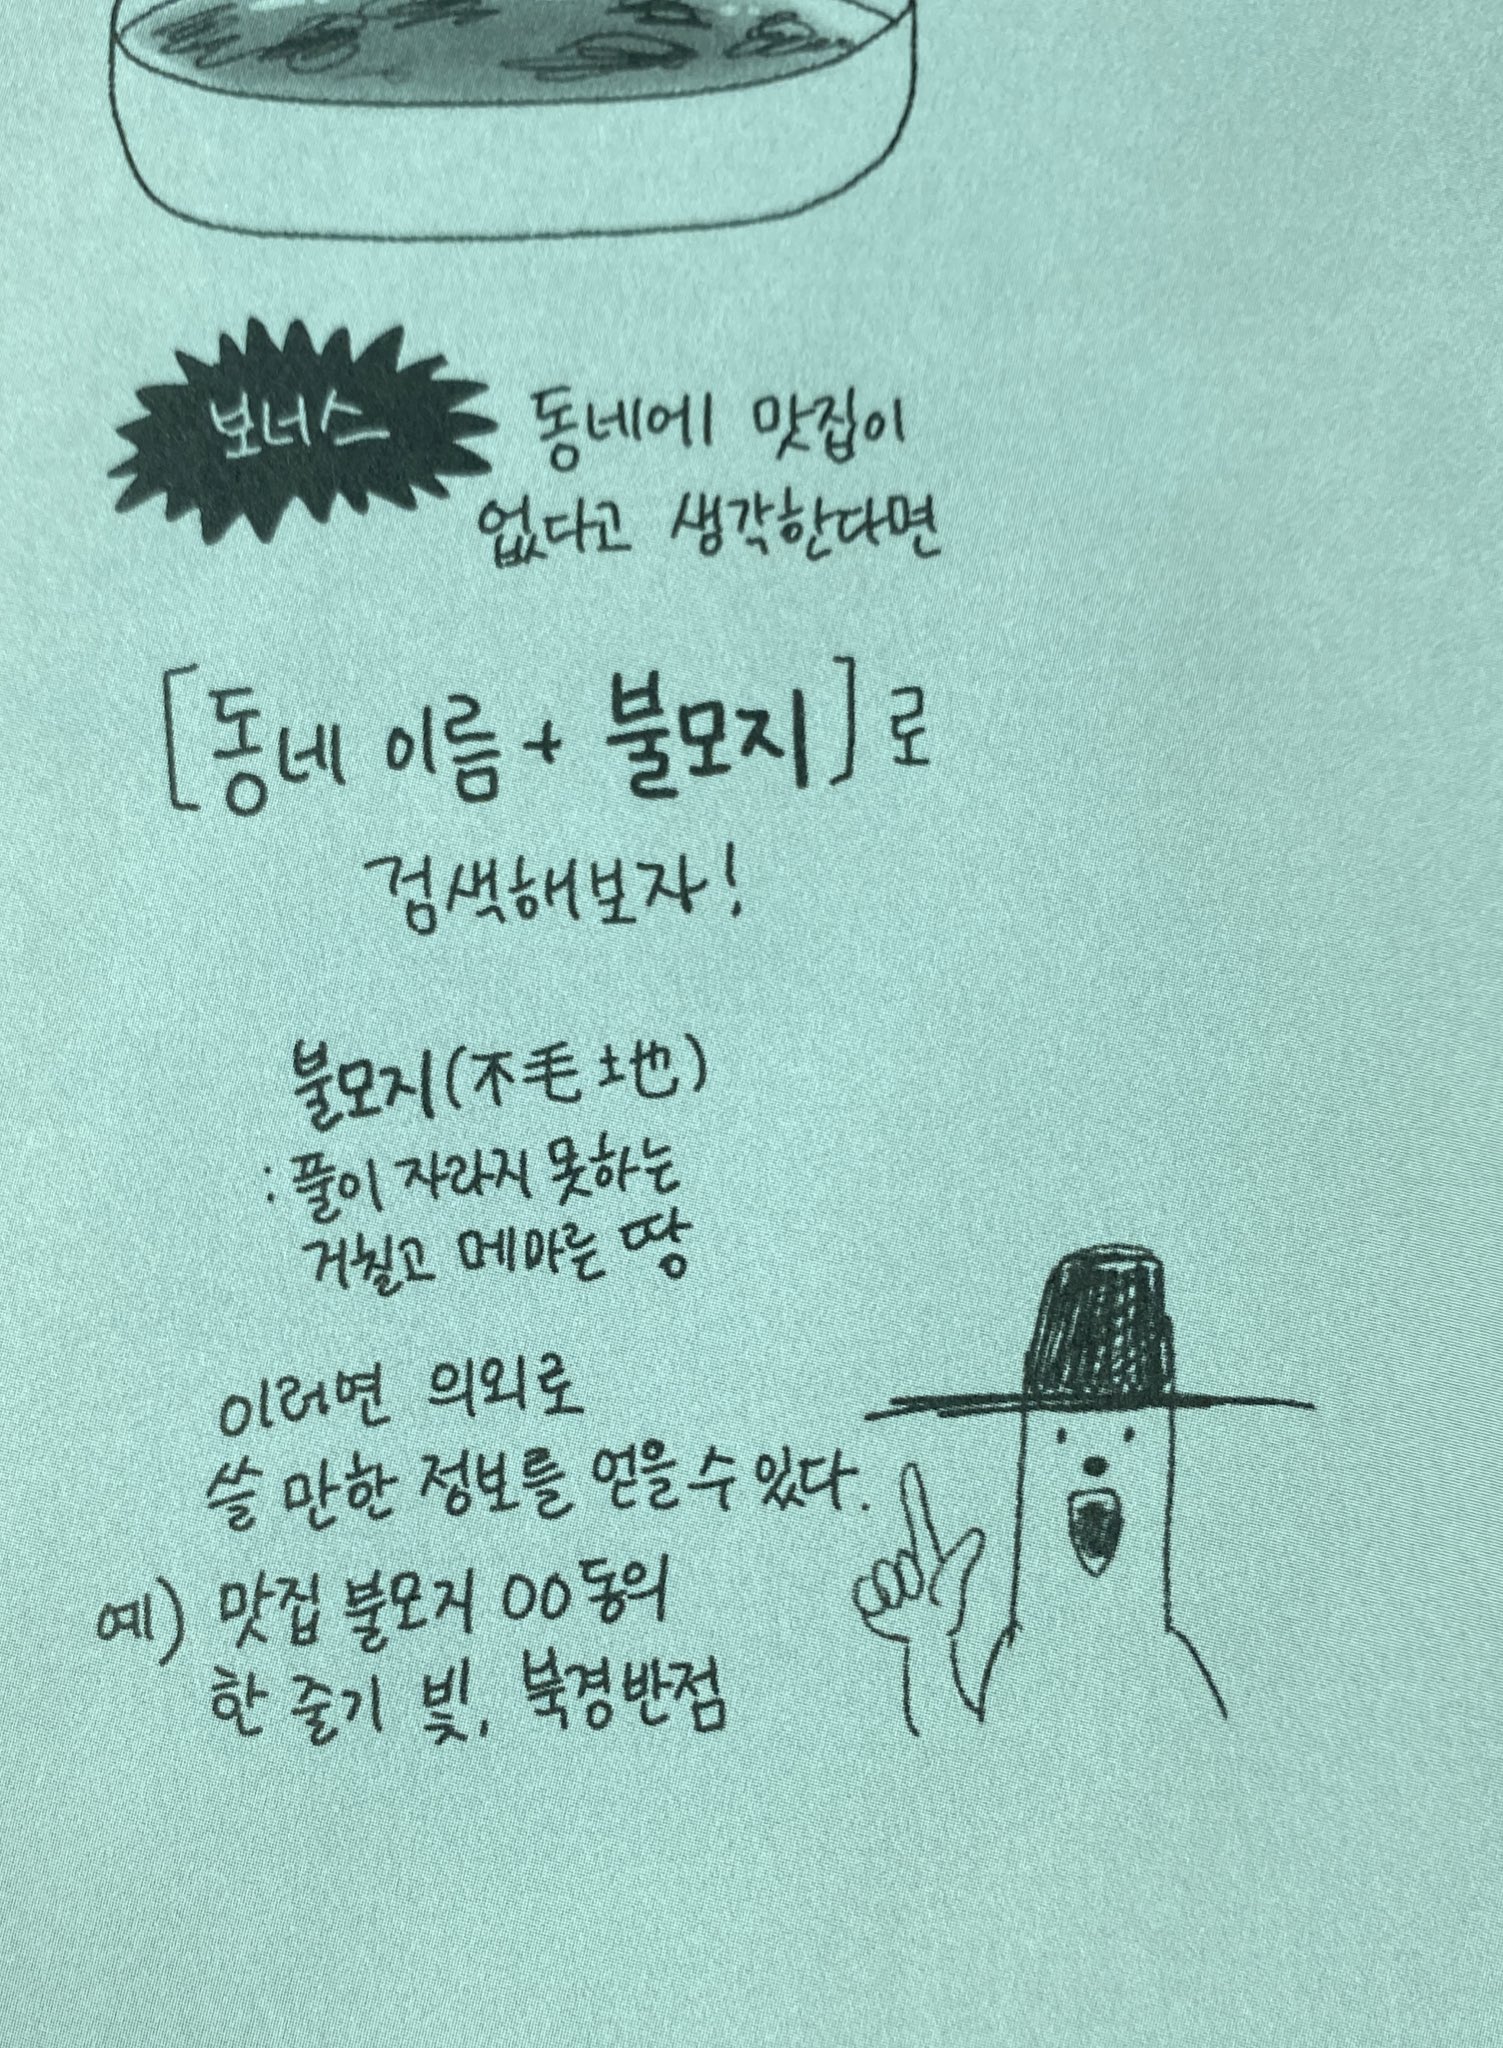 보너스 동네에 맛집이
없다고 생각한다면
[동네 이름 + 불모지]로
검색해보자!
불모지(不毛土也)
: 풀이 자라지 못하는
거칠고 메마른 땅
이러면 의외로
쓸 만한 정보를 얻을 수 있다.
예) 맛집 불모지 OO동의
한 줄기 빛, 북경반점